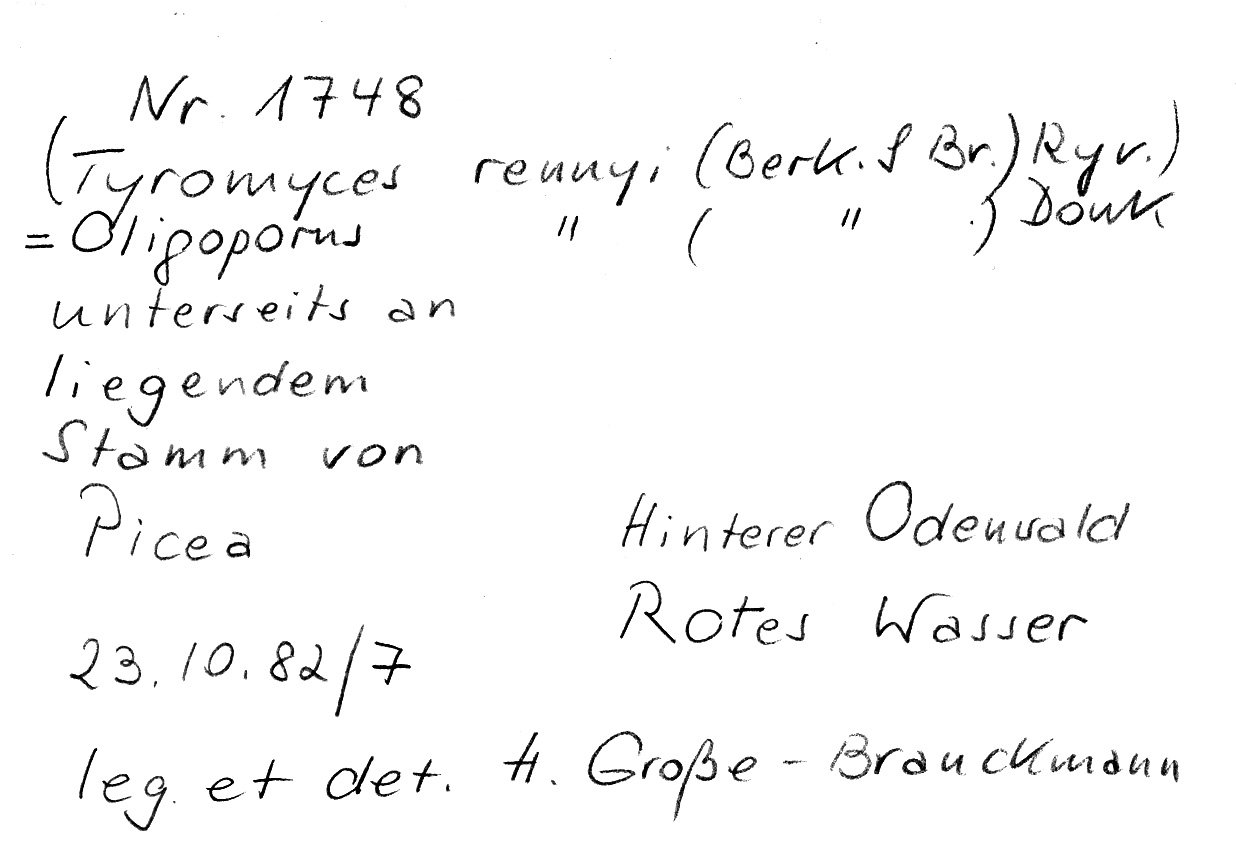 Nr. 1748
(Tyromyces rennyi (Berk. & Br.) Ryv.)
= Oligoporus " ( " .) Donk
unterseits an
liegendem
Stamm von
Picea
Hinterer Odenwald
Rotes Wasser
23.10.82/7
leg. et det. H. Große-Brauckmann